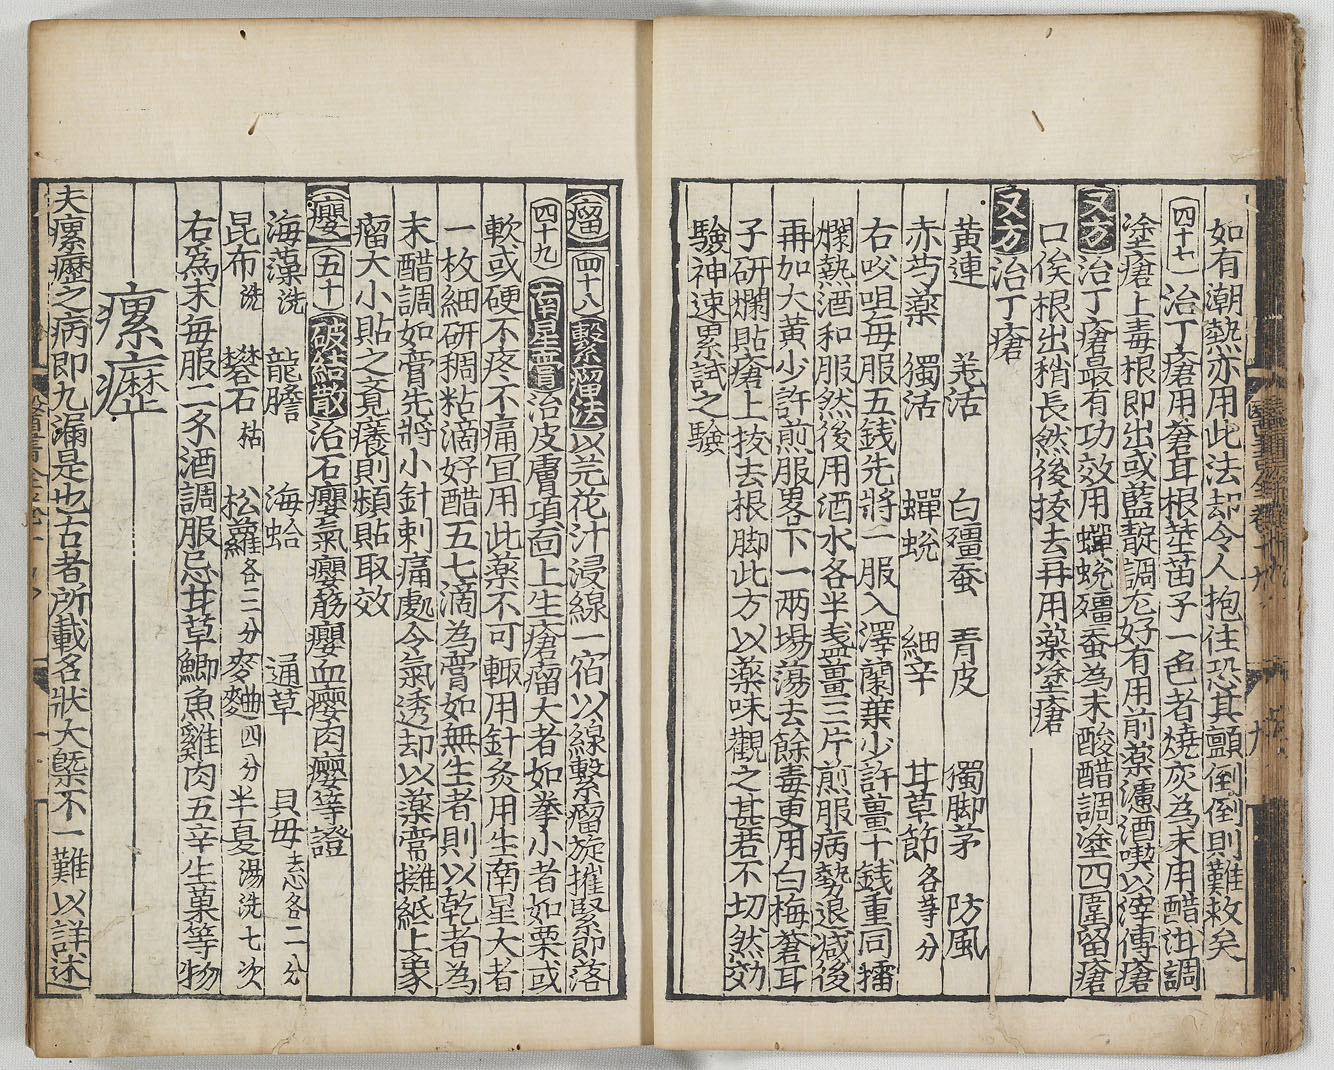 如有潮熱亦用此法却令人抱住恐其顚倒倒則難救矣
四十七 治丁瘡用蒼耳根莖苗子一色者燒灰為末用醋泔調
塗瘡上毒根即出或藍靛調尤好有用前藥濾酒喫以滓傅瘡
又方 治丁瘡最有功效用蟬蛻殭蚕為末酸醋調塗四圍留瘡
口俟根出稍長然後拔去再用藥塗瘡
又方 治丁瘡
黄連 羗活 白殭蚕 青皮 獨脚茅 防風
赤芍藥 獨活 蟬蛻 細辛 甘草節各等分
右㕮咀每服五錢先將一服入澤蘭葉少許薑十錢重同擂
爛熱酒和服然後用酒水各半盞薑三片煎服病勢退减後
再加大黄少許煎服畧下一兩塲蕩去餘毒更用白梅蒼耳
子研爛貼瘡上拔去根脚此方以藥味觀之甚若不切然効
驗神速累試之驗
瘤 四十八 繫瘤法 以芫花汁浸線一宿以線繫瘤旋摧緊即落
四十九 南星膏 治皮膚項面上生瘡瘤大者如拳小者如栗或
軟或硬不疼不痛宜用此藥不可輙用針灸用生南星大者
一枚細研稠粘滴好醋五七滴為膏如無生者則以乾者為
末醋調如膏先將小針刺痛處令氣透却以藥膏攤紙上象
瘤大小貼之覔癢則頻貼取效
癭 五十 破結散 治石癭氣癭筋癭血癭肉癭等證
海藻洗 龍膽 海蛤 通草 貝母去心各二分
昆布洗 礬石枯 松蘿各三分 麥麯四分 半夏湯洗七次
右爲末每服二錢酒調服忌甘草鯽魚雞肉五辛生菓等物
瘰癧
夫瘰癧之病即九漏是也古者所載名狀大槩不一難以詳述